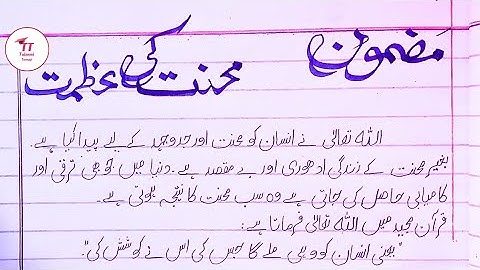 Taleemi Tareeqi
مضمون
محنت کی عظمت
اللہ تعالیٰ نے انسان کو محنت اور جدوجہد کے لیے پیدا کیا ہے۔
بغیر محنت کے زندگی ادھوری اور بے مقصد ہے۔ دنیا میں جو بھی ترقی اور
کامیابی حاصل کی جاتی ہے وہ سب محنت کا نتیجہ ہوتی ہے۔
قرآن مجید میں اللہ تعالیٰ فرماتا ہے:
"یعنی انسان کو وہی ملے گا جس کی اس نے کوشش کی"۔